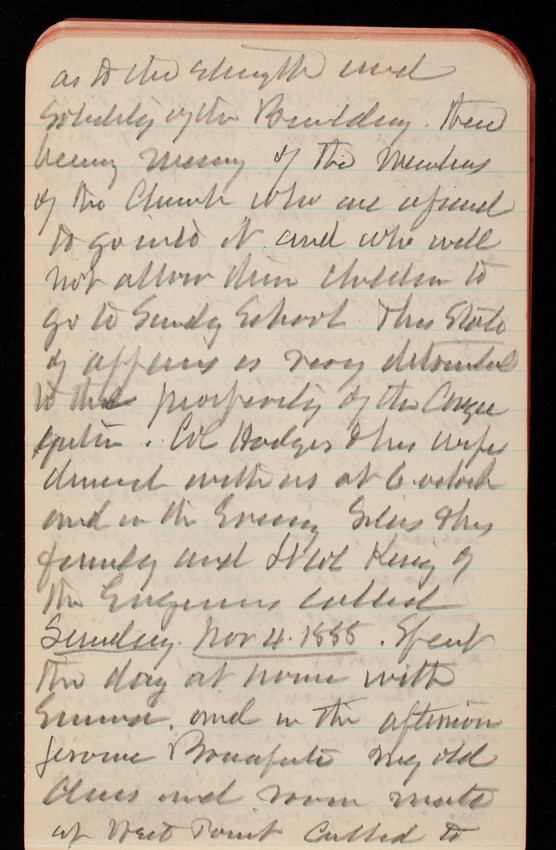 as to the strength and
solidity of the Building. There
being many of the members
of the Church who are afraid
to go into it and who will
not allow their children to
go to Sunday School. This State
of affairs is very detrimental
to the prosperity of the Congre
gation. Col Hodges & his wife
dined with us at 6 oclock
and in the Evening Silas & his
family and Lt Col King of
the Engineers called
Sunday. Nov 4. 1888. Spent
the day at home with
Emma. and in the afternoon
Jerome Bonaparte my old
Class and room mate
at West Point called to